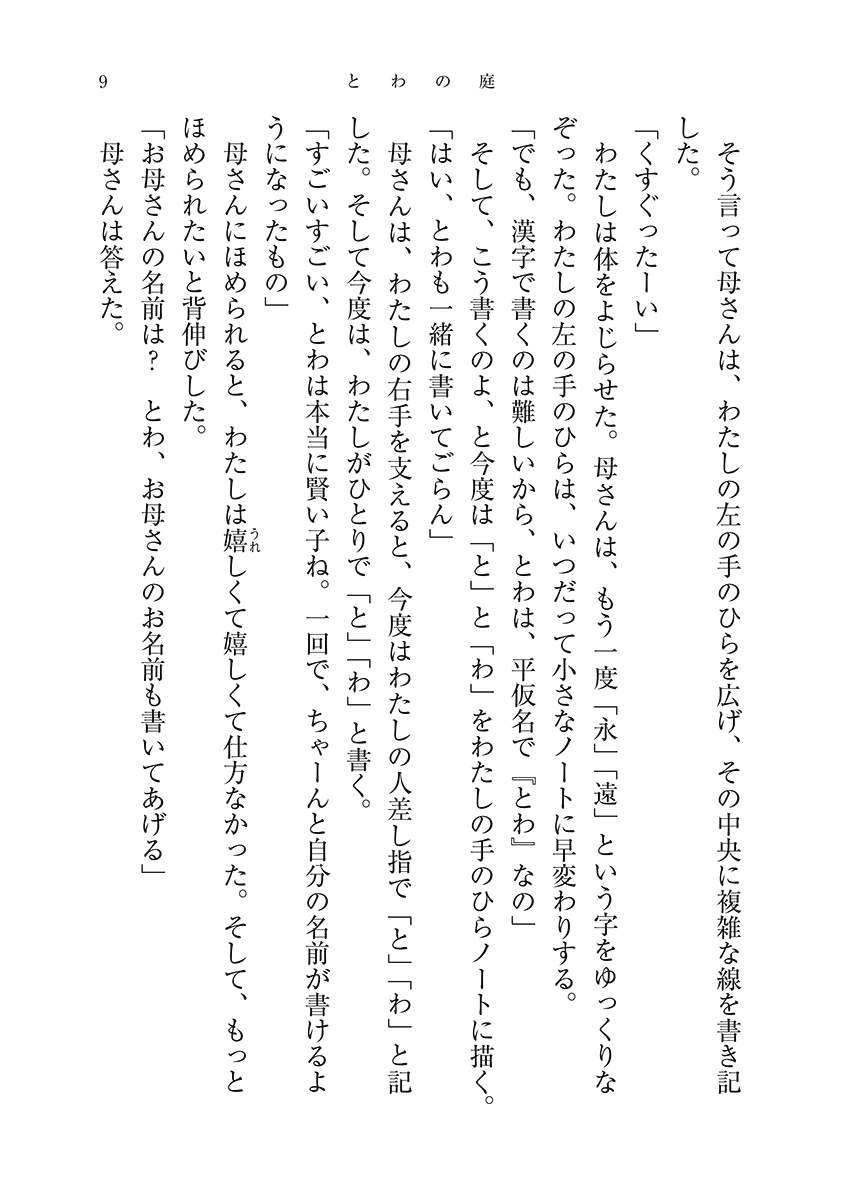 9
とわの庭
そう言って母さんは、わたしの左の手のひらを広げ、その中央に複雑な線を書き記
した。
「くすぐったーい」
わたしは体をよじらせた。母さんは、もう一度「永」「遠」という字をゆっくりな
ぞった。わたしの左の手のひらは、いつだって小さなノートに早変わりする。
「でも、漢字で書くのは難しいから、とわは、平仮名で『とわ』なの」
そして、こう書くのよ、と今度は「と」と「わ」をわたしの手のひらノートに描く。
「はい、とわも一緒に書いてごらん」
母さんは、わたしの右手を支えると、今度はわたしの人差し指で「と」「わ」と記
した。そして今度は、わたしがひとりで「と」「わ」と書く。
「すごいすごい、とわは本当に賢い子ね。一回で、ちゃーんと自分の名前が書けるよ
うになったもの」
母さんにほめられると、わたしは嬉しくて嬉しくて仕方なかった。そして、もっと
うれ
ほめられたいと背伸びした。
「お母さんの名前は？　とわ、お母さんのお名前も書いてあげる」
母さんは答えた。